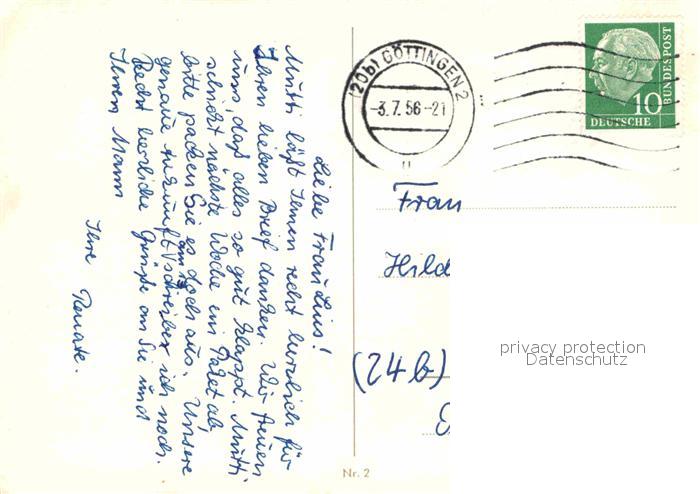 Liebe Frau Lins!
Mutti läßt Ihnen recht herzlich für
Ihren lieben Brief danken. Wir freuen
uns, daß alles so gut klappt. Mutti
schickt nächste Woche ein Paket ab,
bitte packen Sie es doch aus. Unsere
genaue Ankunft schreiben ich noch.
Recht herzliche Grüße an Sie und
Ihren Mann
Ihre Renate.
(20b) GÖTTINGEN 2
-3.7.56-21
u
10
DEUTSCHE
BUNDESPOST
Frau
Hild
(24b)
privacy protection
Datenschutz
Nr. 2